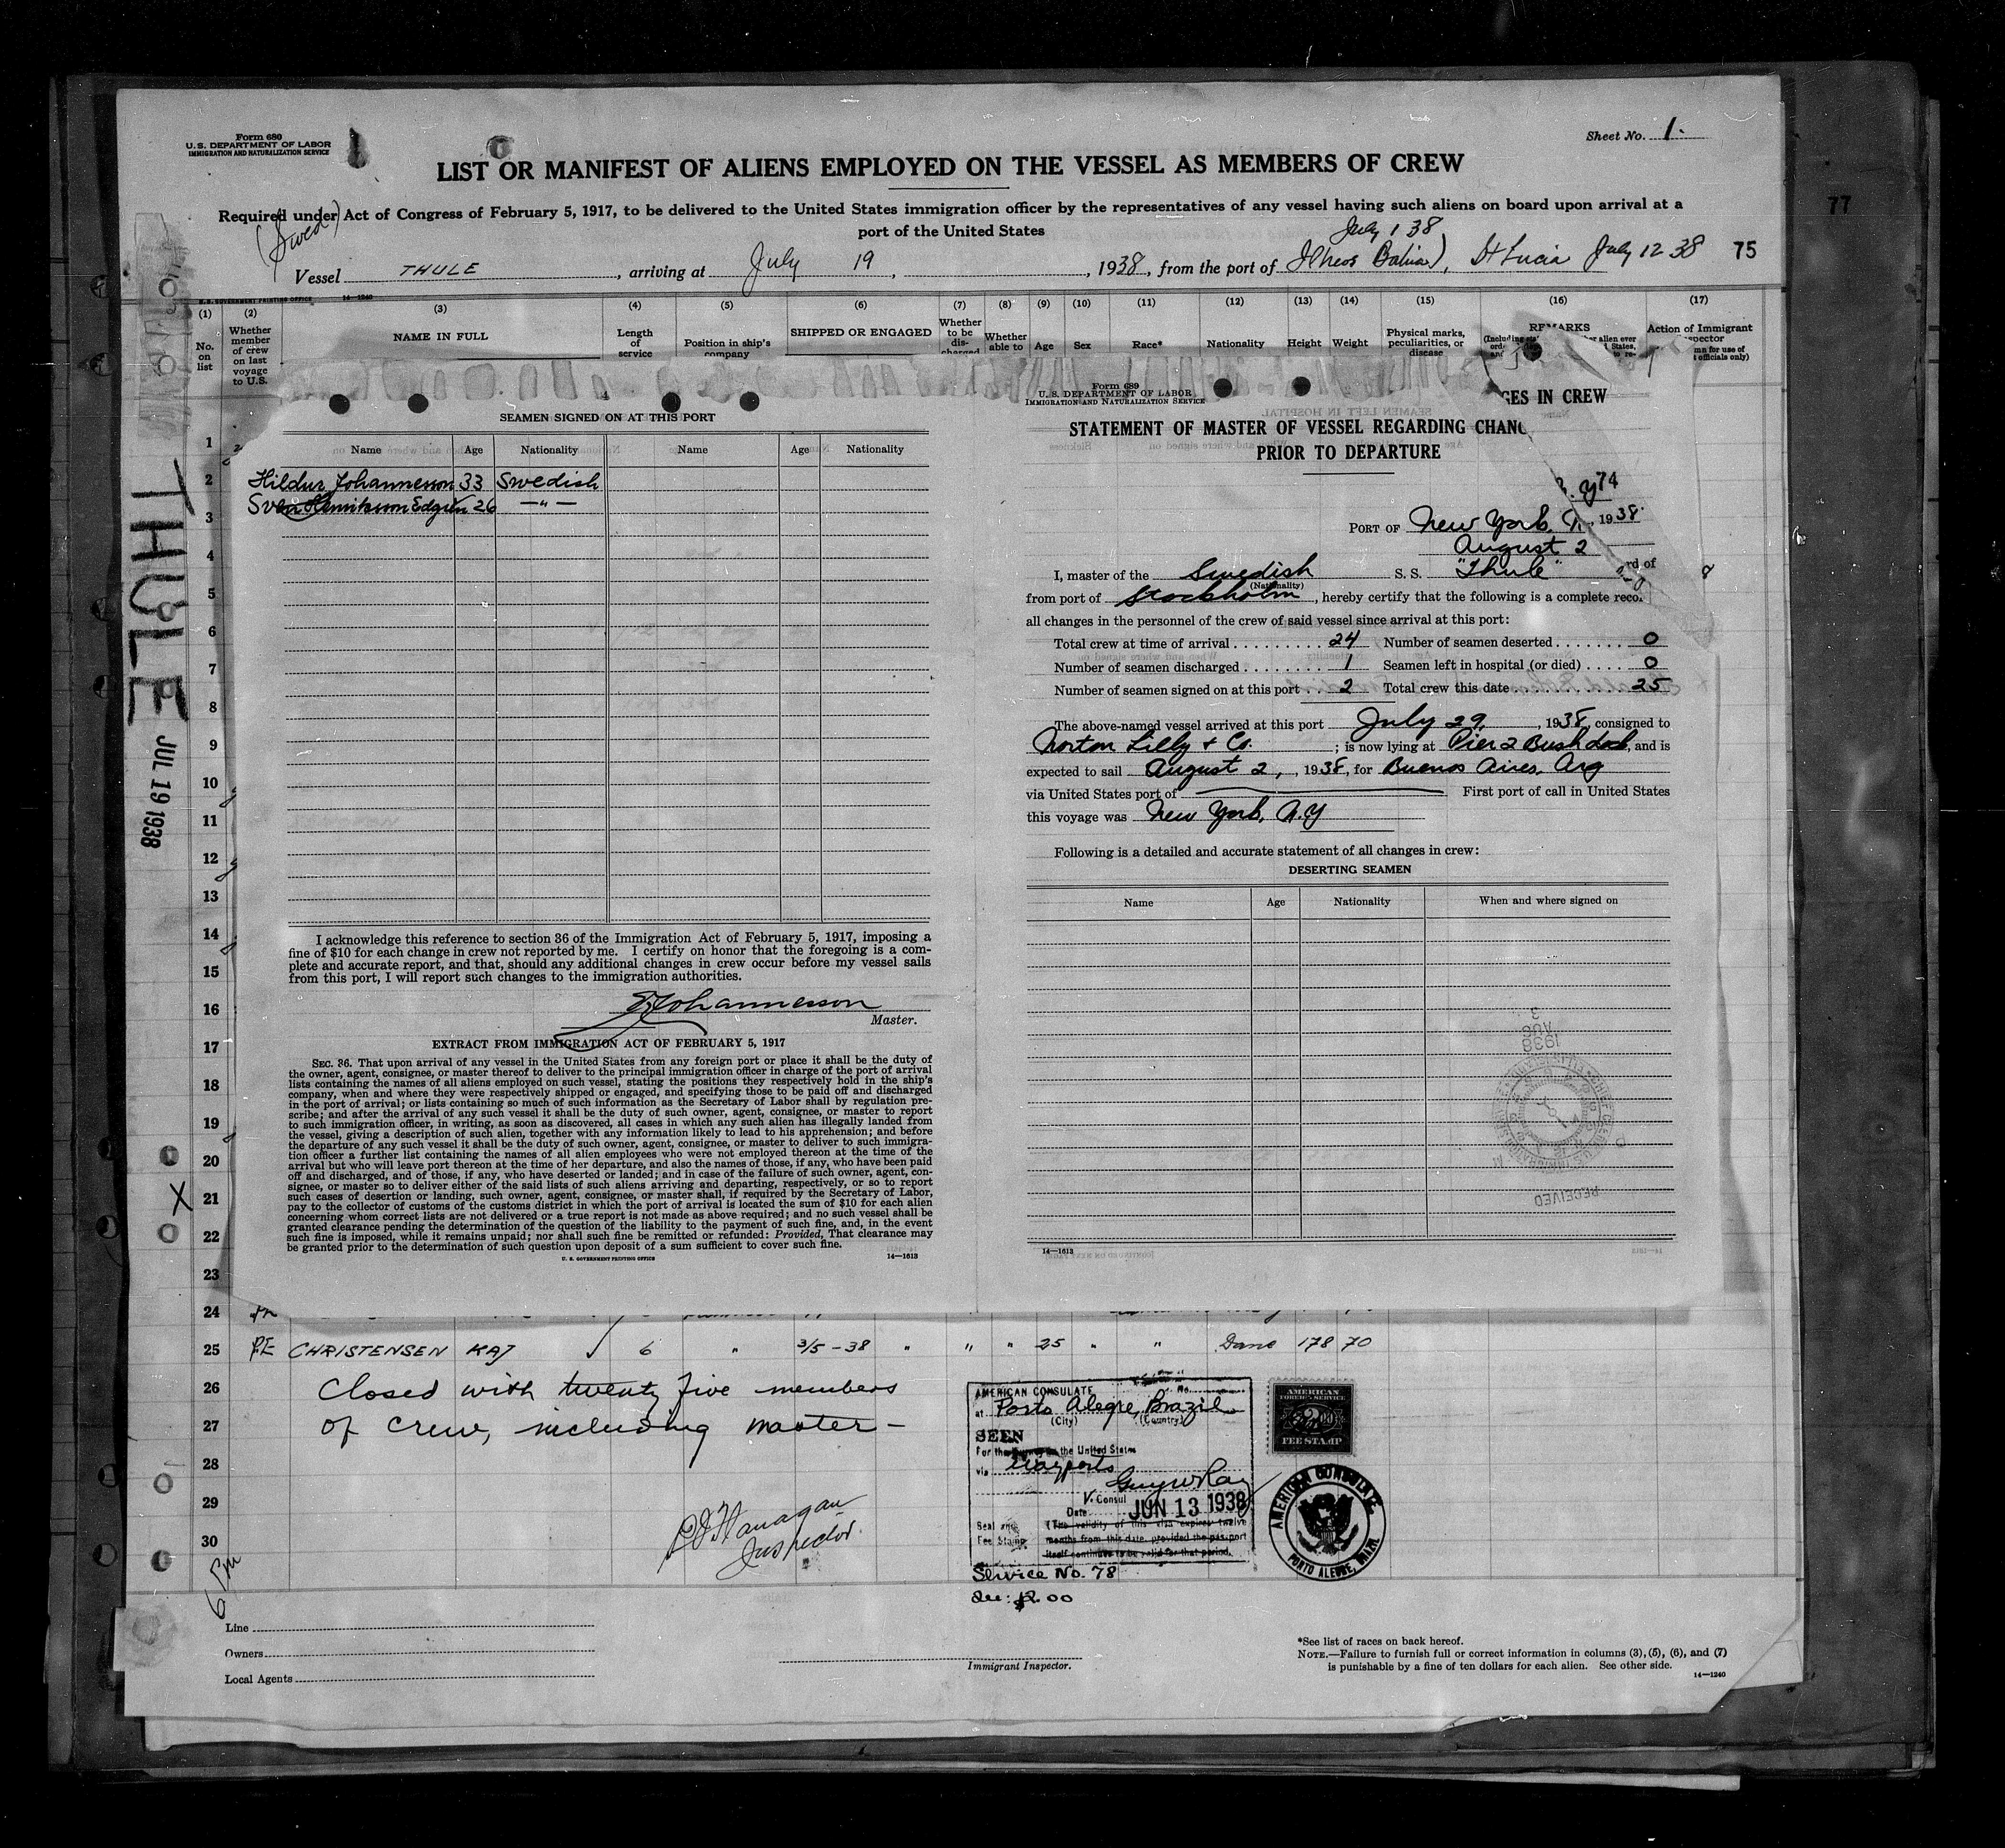 Form 680
U. S. DEPARTMENT OF LABOR
IMMIGRATION AND NATURALIZATION SERVICE
Sheet No. 1.
LIST OR MANIFEST OF ALIENS EMPLOYED ON THE VESSEL AS MEMBERS OF CREW
Required under Act of Congress of February 5, 1917, to be delivered to the United States immigration officer by the representatives of any vessel having such aliens on board upon arrival at a
port of the United States
(Swed)
July 1 38
Vessel THULE, arriving at July 19, 1938, from the port of Ilheos Bahia), St Lucia July 12 38
75
77
U. S. GOVERNMENT PRINTING OFFICE 14—1240
(1) (2) (3) (4) (5) (6) (7) (8) (9) (10) (11) (12) (13) (14) (15) (16) (17)
No. on list
Whether member of crew on last voyage to U.S.
NAME IN FULL
Length of service
Position in ship's company
SHIPPED OR ENGAGED
Whether to be discharged
Whether able to
Age
Sex
Race*
Nationality
Height
Weight
Physical marks, peculiarities, or disease
REMARKS
Action of Immigrant
THULE
JUL 19 1938
SEAMEN SIGNED ON AT THIS PORT
Name Age Nationality Name Age Nationality
Hildur Johannesson 33 Swedish
Sven Henriksson Edgren 26 —"—
I acknowledge this reference to section 36 of the Immigration Act of February 5, 1917, imposing a
fine of $10 for each change in crew not reported by me. I certify on honor that the foregoing is a com-
plete and accurate report, and that, should any additional changes in crew occur before my vessel sails
from this port, I will report such changes to the immigration authorities.
Johannesson
Master.
EXTRACT FROM IMMIGRATION ACT OF FEBRUARY 5, 1917
SEC. 36. That upon arrival of any vessel in the United States from any foreign port or place it shall be the duty of
the owner, agent, consignee, or master thereof to deliver to the principal immigration officer in charge of the port of arrival
lists containing the names of all aliens employed on such vessel, stating the positions they respectively hold in the ship's
company, when and where they were respectively shipped or engaged, and specifying those to be paid off and discharged
in the port of arrival; or lists containing so much of such information as the Secretary of Labor shall by regulation pre-
scribe; and after the arrival of any such vessel it shall be the duty of such owner, agent, consignee, or master to report
to such immigration officer, in writing, as soon as discovered, all cases in which any such alien has illegally landed from
the vessel, giving a description of such alien, together with any information likely to lead to his apprehension; and before
the departure of any such vessel it shall be the duty of such owner, agent, consignee, or master to deliver to such immigra-
tion officer a further list containing the names of all alien employees who were not employed thereon at the time of the
arrival but who will leave port thereon at the time of her departure, and also the names of those, if any, who have been paid
off and discharged, and of those, if any, who have deserted or landed; and in case of the failure of such owner, agent, con-
signee, or master so to deliver either of the said lists of such aliens arriving and departing, respectively, or so to report
such cases of desertion or landing, such owner, agent, consignee, or master shall, if required by the Secretary of Labor,
pay to the collector of customs of the customs district in which the port of arrival is located the sum of $10 for each alien
concerning whom correct lists are not delivered or a true report is not made as above required; and no such vessel shall be
granted clearance pending the determination of the question of the liability to the payment of such fine, and, in the event
such fine is imposed, while it remains unpaid; nor shall such fine be remitted or refunded: Provided, That clearance may
be granted prior to the determination of such question upon deposit of a sum sufficient to cover such fine.
U. S. GOVERNMENT PRINTING OFFICE 14—1613
Form 689
U. S. DEPARTMENT OF LABOR
IMMIGRATION AND NATURALIZATION SERVICE
GES IN CREW
STATEMENT OF MASTER OF VESSEL REGARDING CHANG
PRIOR TO DEPARTURE
74
PORT OF New York, 1938.
August 2
I, master of the Swedish S. S. "Thule" rd of
(Nationality)
from port of Stockholm, hereby certify that the following is a complete reco
all changes in the personnel of the crew of said vessel since arrival at this port:
Total crew at time of arrival 24 Number of seamen deserted 0
Number of seamen discharged 1 Seamen left in hospital (or died) 0
Number of seamen signed on at this port 2 Total crew this date 25
The above-named vessel arrived at this port July 29, 1938, consigned to
Norton Lilly & Co.; is now lying at Pier 2 Bush Dock, and is
expected to sail August 2, 1938, for Buenos Aires, Arg
via United States port of First port of call in United States
this voyage was New York, N.Y
Following is a detailed and accurate statement of all changes in crew:
DESERTING SEAMEN
Name Age Nationality When and where signed on
RECEIVED
AUG 3 1938
14—1613
1
2
3
4
5
6
7
8
9
10
11
12
13
14
15
16
17
18
19
20
X 21
22
23
24
25 RE CHRISTENSEN KAJ √ 6 " 3/5-38 " " " 25 " " Dane 178 70
26 Closed with twenty five members
27 of crew, including master —
28
29
30
Inspector
6 Pm
AMERICAN CONSULATE
at Porto Alegre, Brazil
(City) (Country)
SEEN
For the the United States
via wayports
Guy W Ray
V. Consul
Date JUN 13 1938
(The validity of this visa expires twelve
months from this date, provided the passport
itself continues to be valid for that period.
Service No. 78
$2.00
AMERICAN
FOREIGN SERVICE
2
FEE STAMP
AMERICAN CONSULATE,
PORTO ALEGRE, BRAZIL
Line
Owners
Local Agents
Immigrant Inspector.
*See list of races on back hereof.
NOTE.—Failure to furnish full or correct information in columns (3), (5), (6), and (7)
is punishable by a fine of ten dollars for each alien. See other side.
14—1240